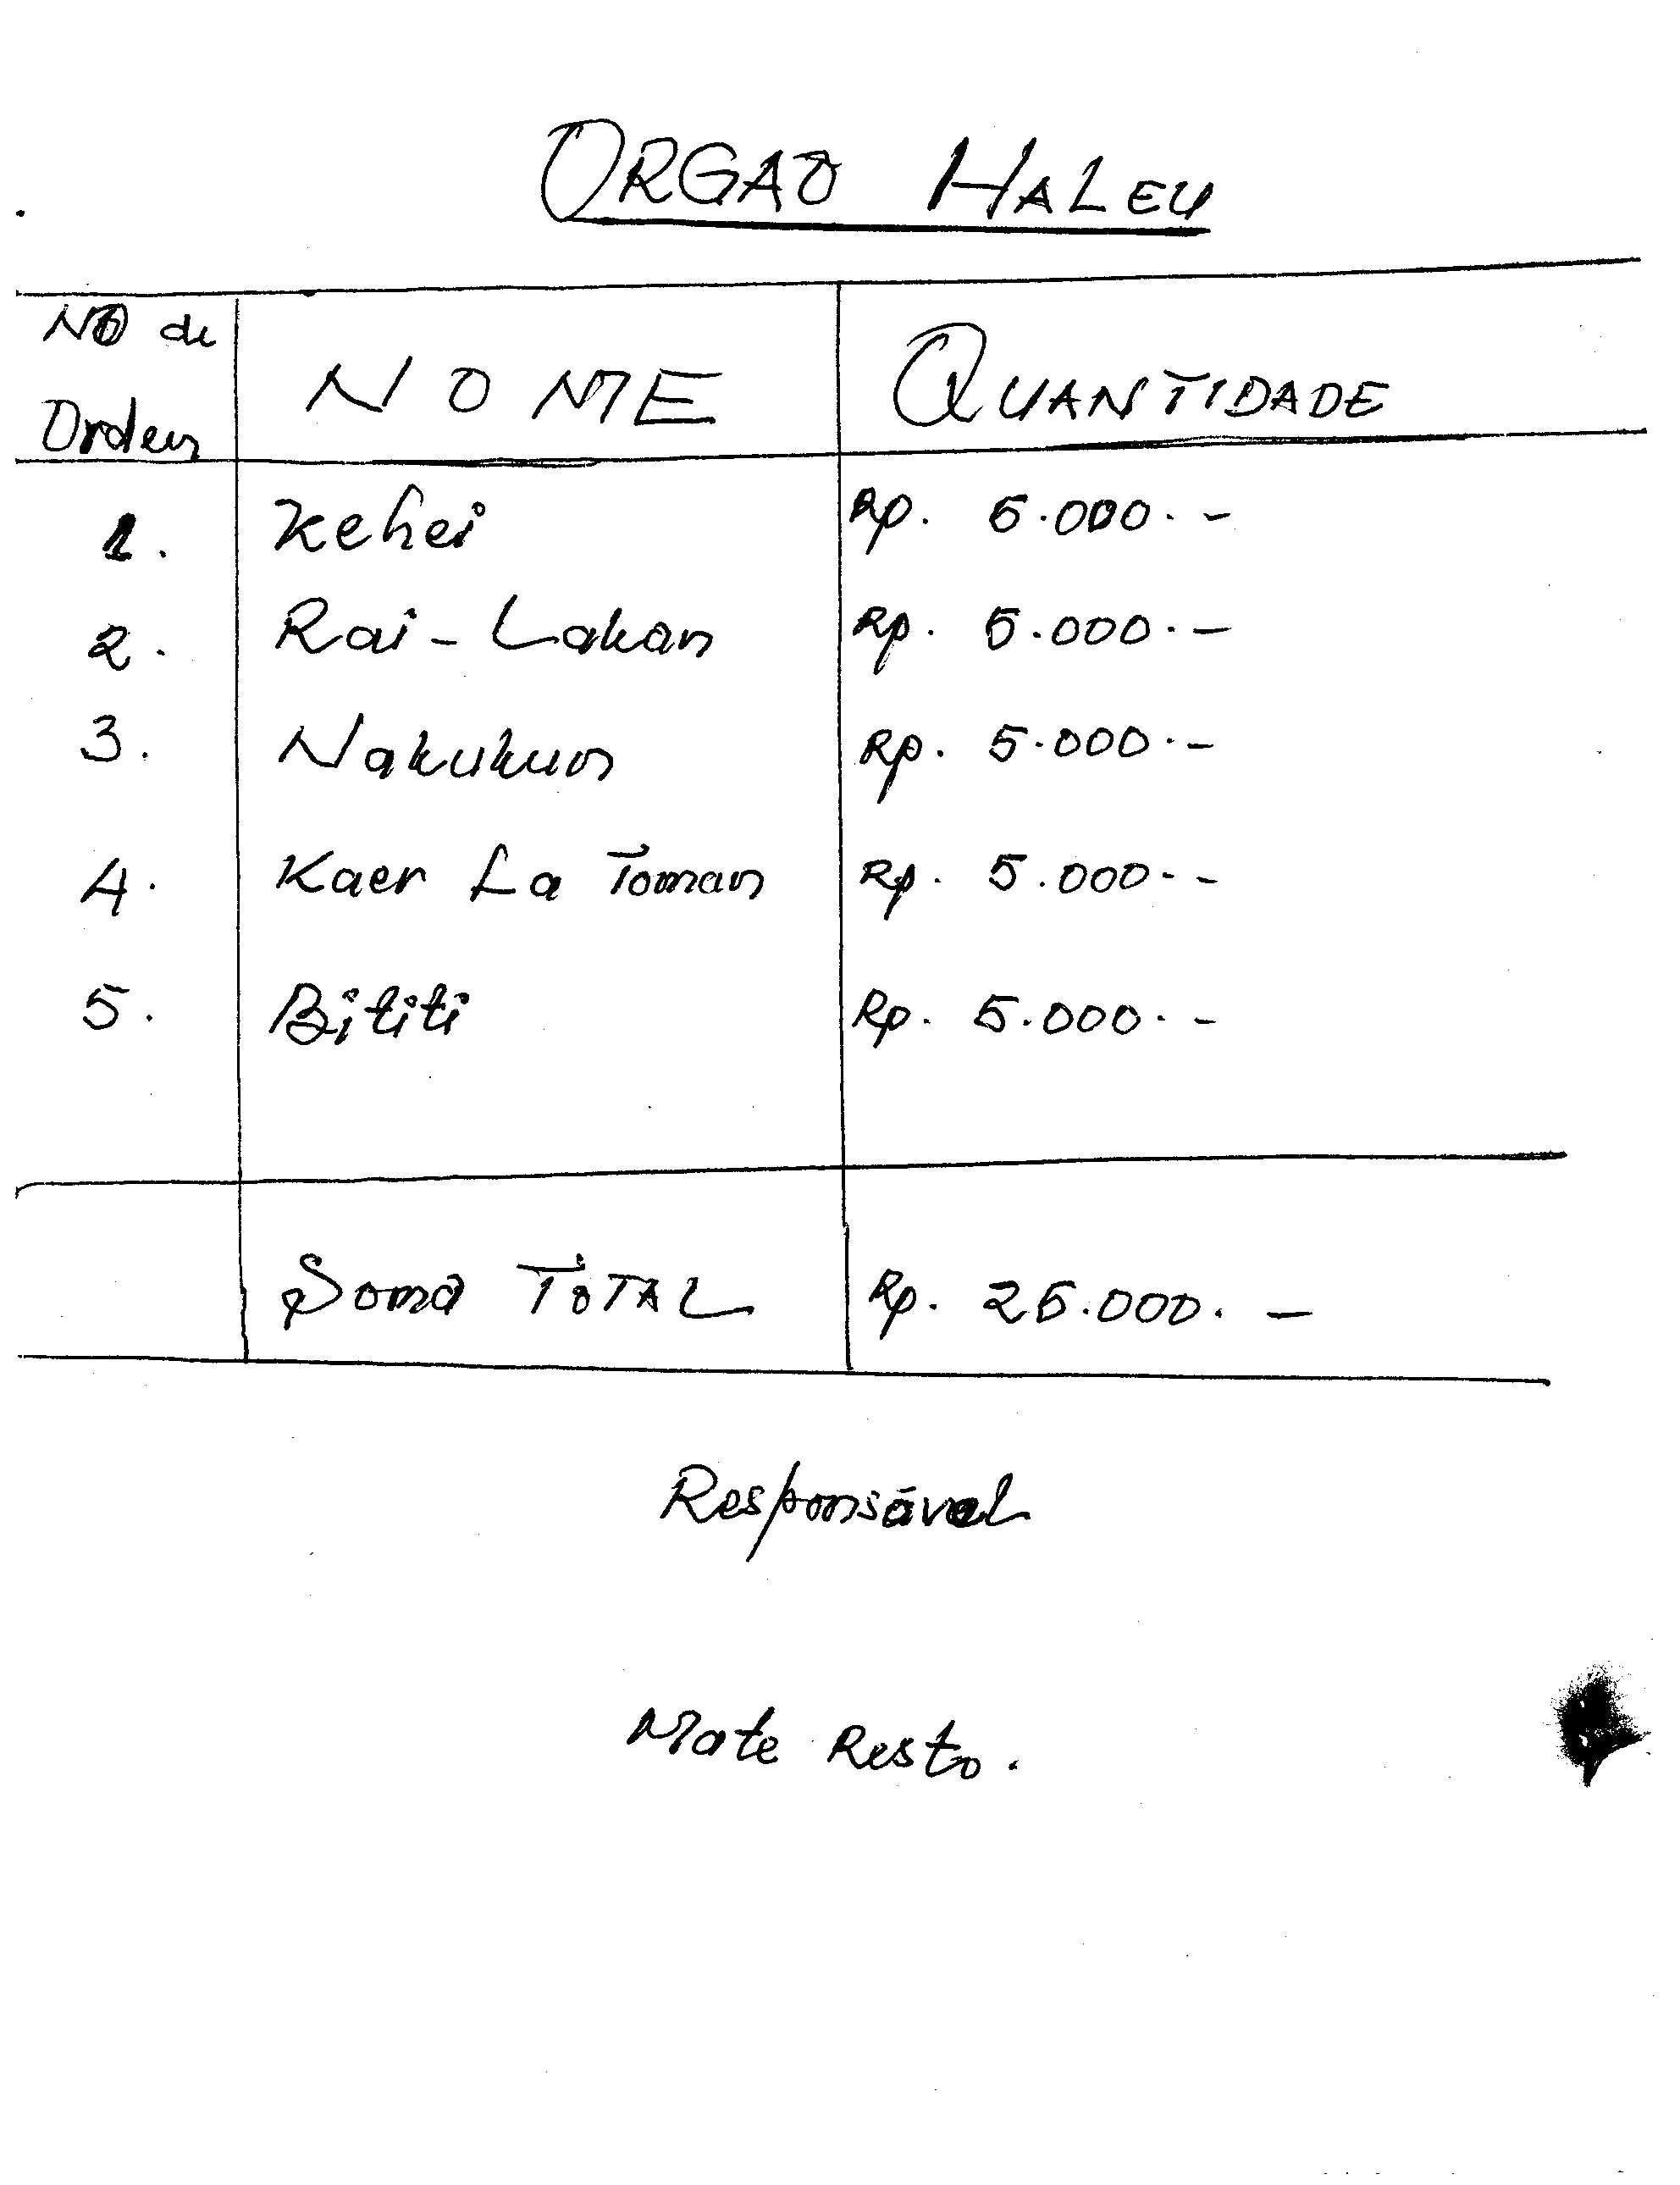 ORGAO HALEU
NO de Ordem NOME QUANTIDADE
1. Kehei Rp. 5.000.-
2. Rai-Lakan Rp. 5.000.-
3. Nakukun Rp. 5.000.-
4. Kaer La Toman Rp. 5.000.-
5. Bititi Rp. 5.000.-
Soma TOTAL Rp. 25.000.-
Responsável
Mate Resto.